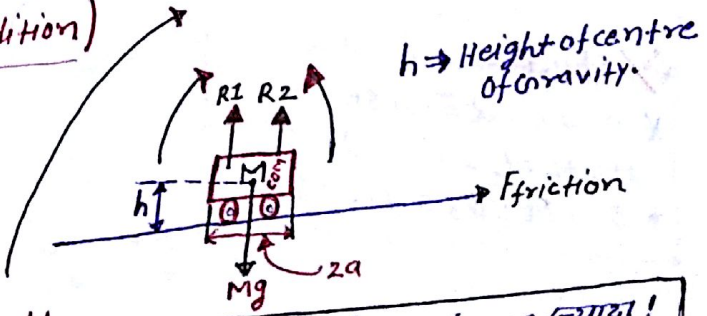 lition)
h ⇒ Height of centre
of Gravity.
R1 R2
M com
h
Ffriction
2a
Mg